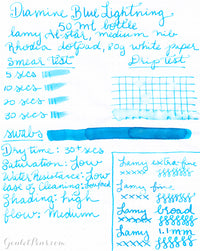 Diamine Blue Lightning
50 ml bottle
Lamy Al-star, medium nib
Rhodia dotpad, 80g white paper
Smear test
Drip test
5 secs
10 secs
20 secs
30 secs
swabs
Dry time: 30+ secs
Saturation: Low
Water Resistance: Low
Ease of Cleaning:
Shading: high
Flow: Medium
Lamy extra-fine
Lamy fine
Lamy broad
Lamy 1.1 mm
GouletPens.com